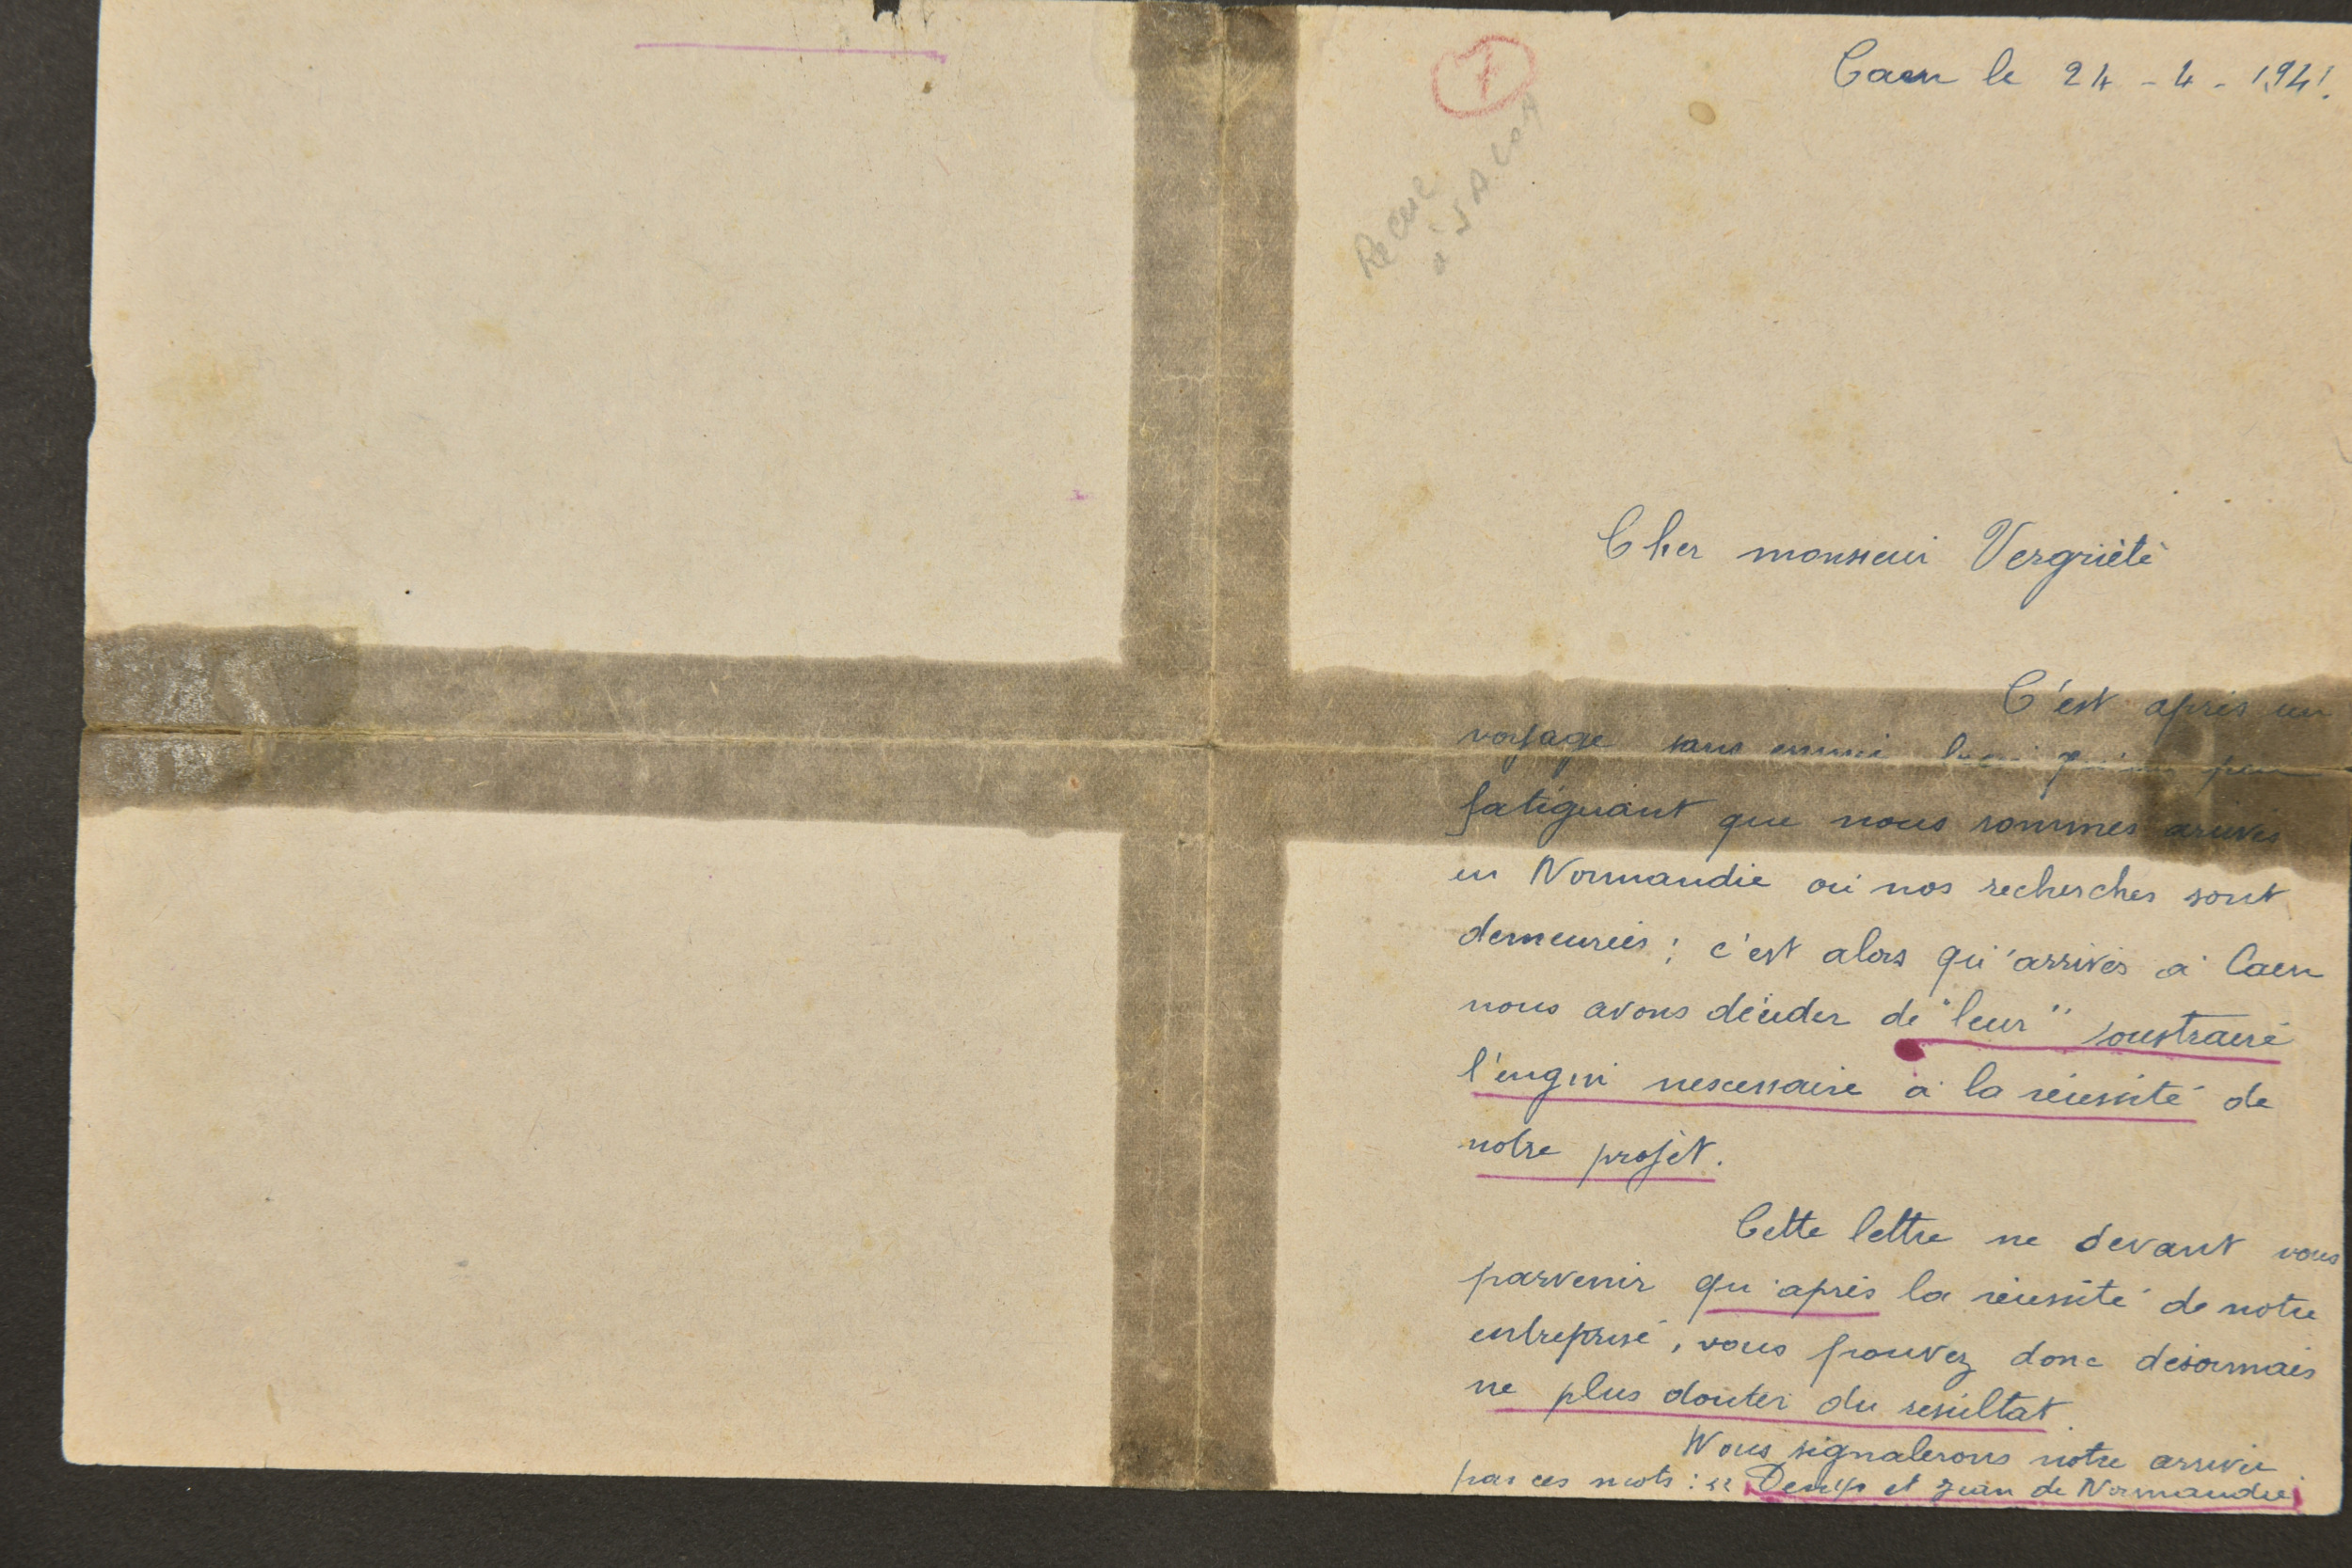 1
Caen le 24 - 4 - 1941.
Recue
à
Cher monsieur Vergriète
C'est après un
voyage sans ennui peu
fatiguant que nous sommes arrivés
en Normandie où nos recherches sont
demeurées ; c'est alors qu'arrivés à Caen
nous avons décider de "leur" soustraire
l'engin nescessaire à la réussite de
notre projet.
Cette lettre ne devant vous
parvenir qu'après la réussite de notre
entreprise, vous pouvez donc désormais
ne plus douter du résultat.
Nous signalerons notre arrivée
par ces mots : " Denys et Jean de Normandie